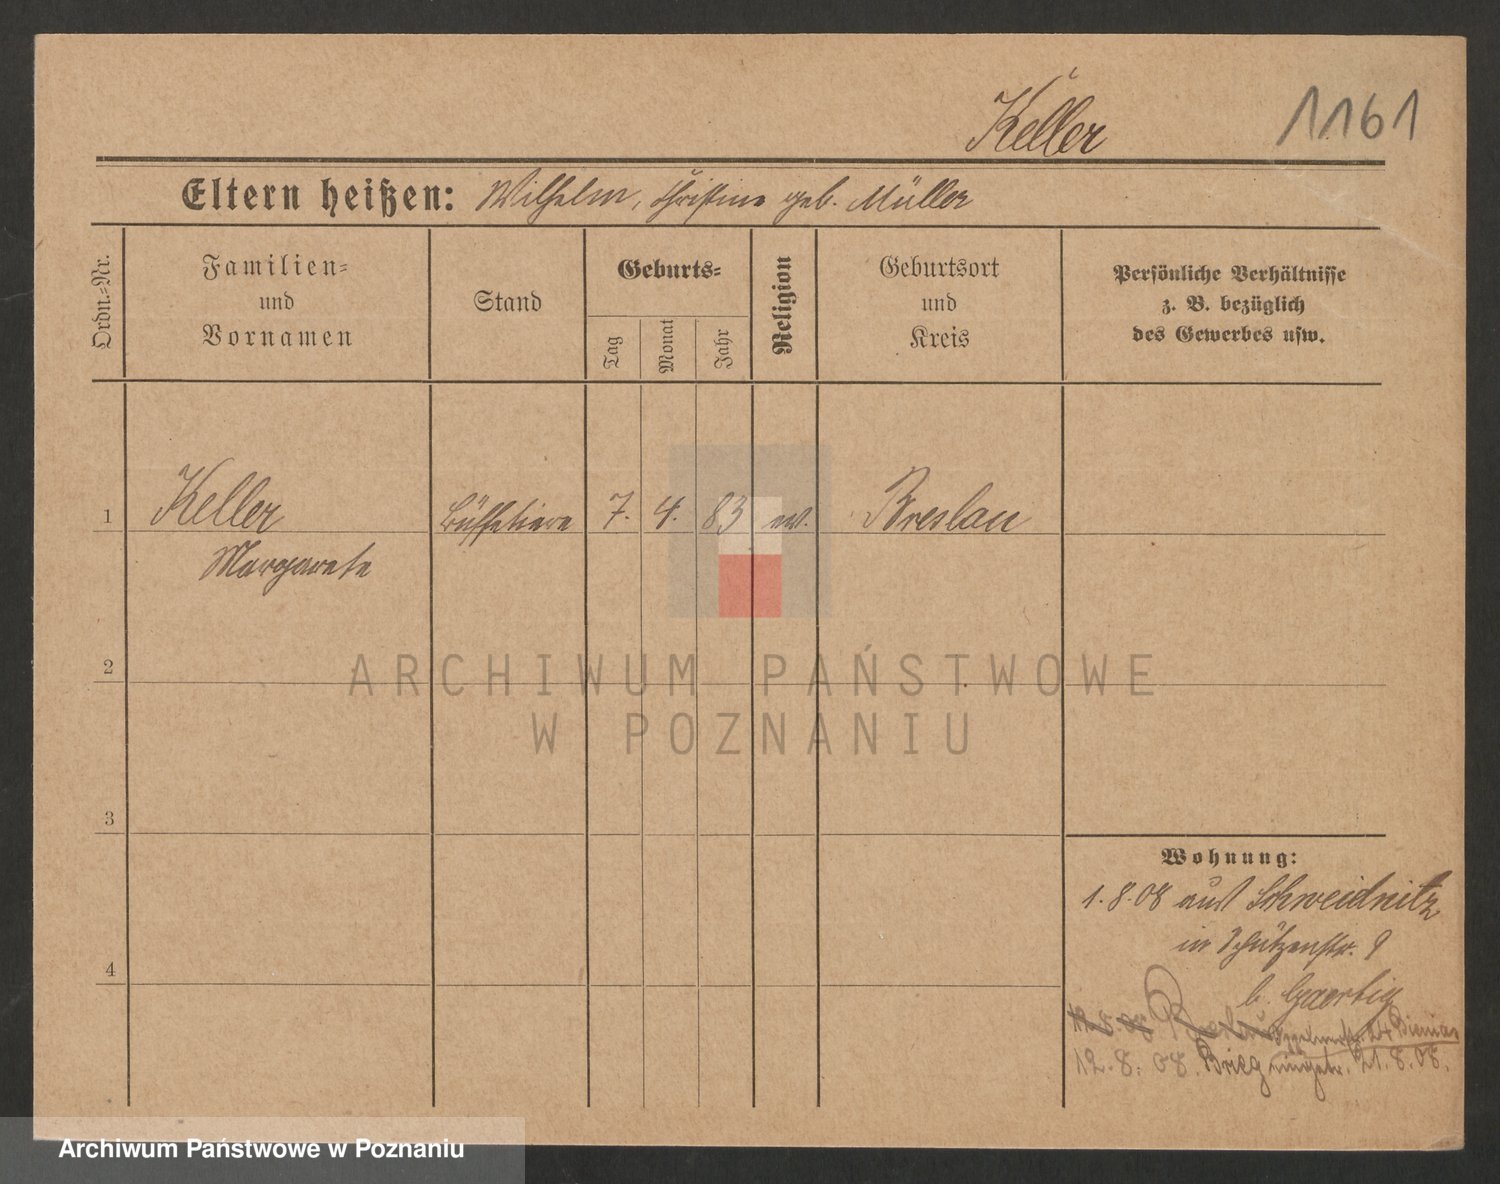 Keller
1161
Eltern heißen: Wilhelm, Christine geb. Müller
Ordn.-Nr.
Familien-
und
Vornamen
Stand
Geburts-
Tag
Monat
Jahr
Religion
Geburtsort
und
Kreis
Persönliche Verhältnisse
z. B. bezüglich
des Gewerbes usw.
1 Keller Büffetiere 7. 4. 83 ev. Breslau
Margarete
2
ARCHIWUM PAŃSTWOWE
W POZNANIU
3
Wohnung:
1.8.08 aus Schweidnitz
in Schützenstr. 9
4
b. Gaertig
12.8.08 24
12.8.08. Brieg eingetr. 21.8.08.
Archiwum Państwowe w Poznaniu